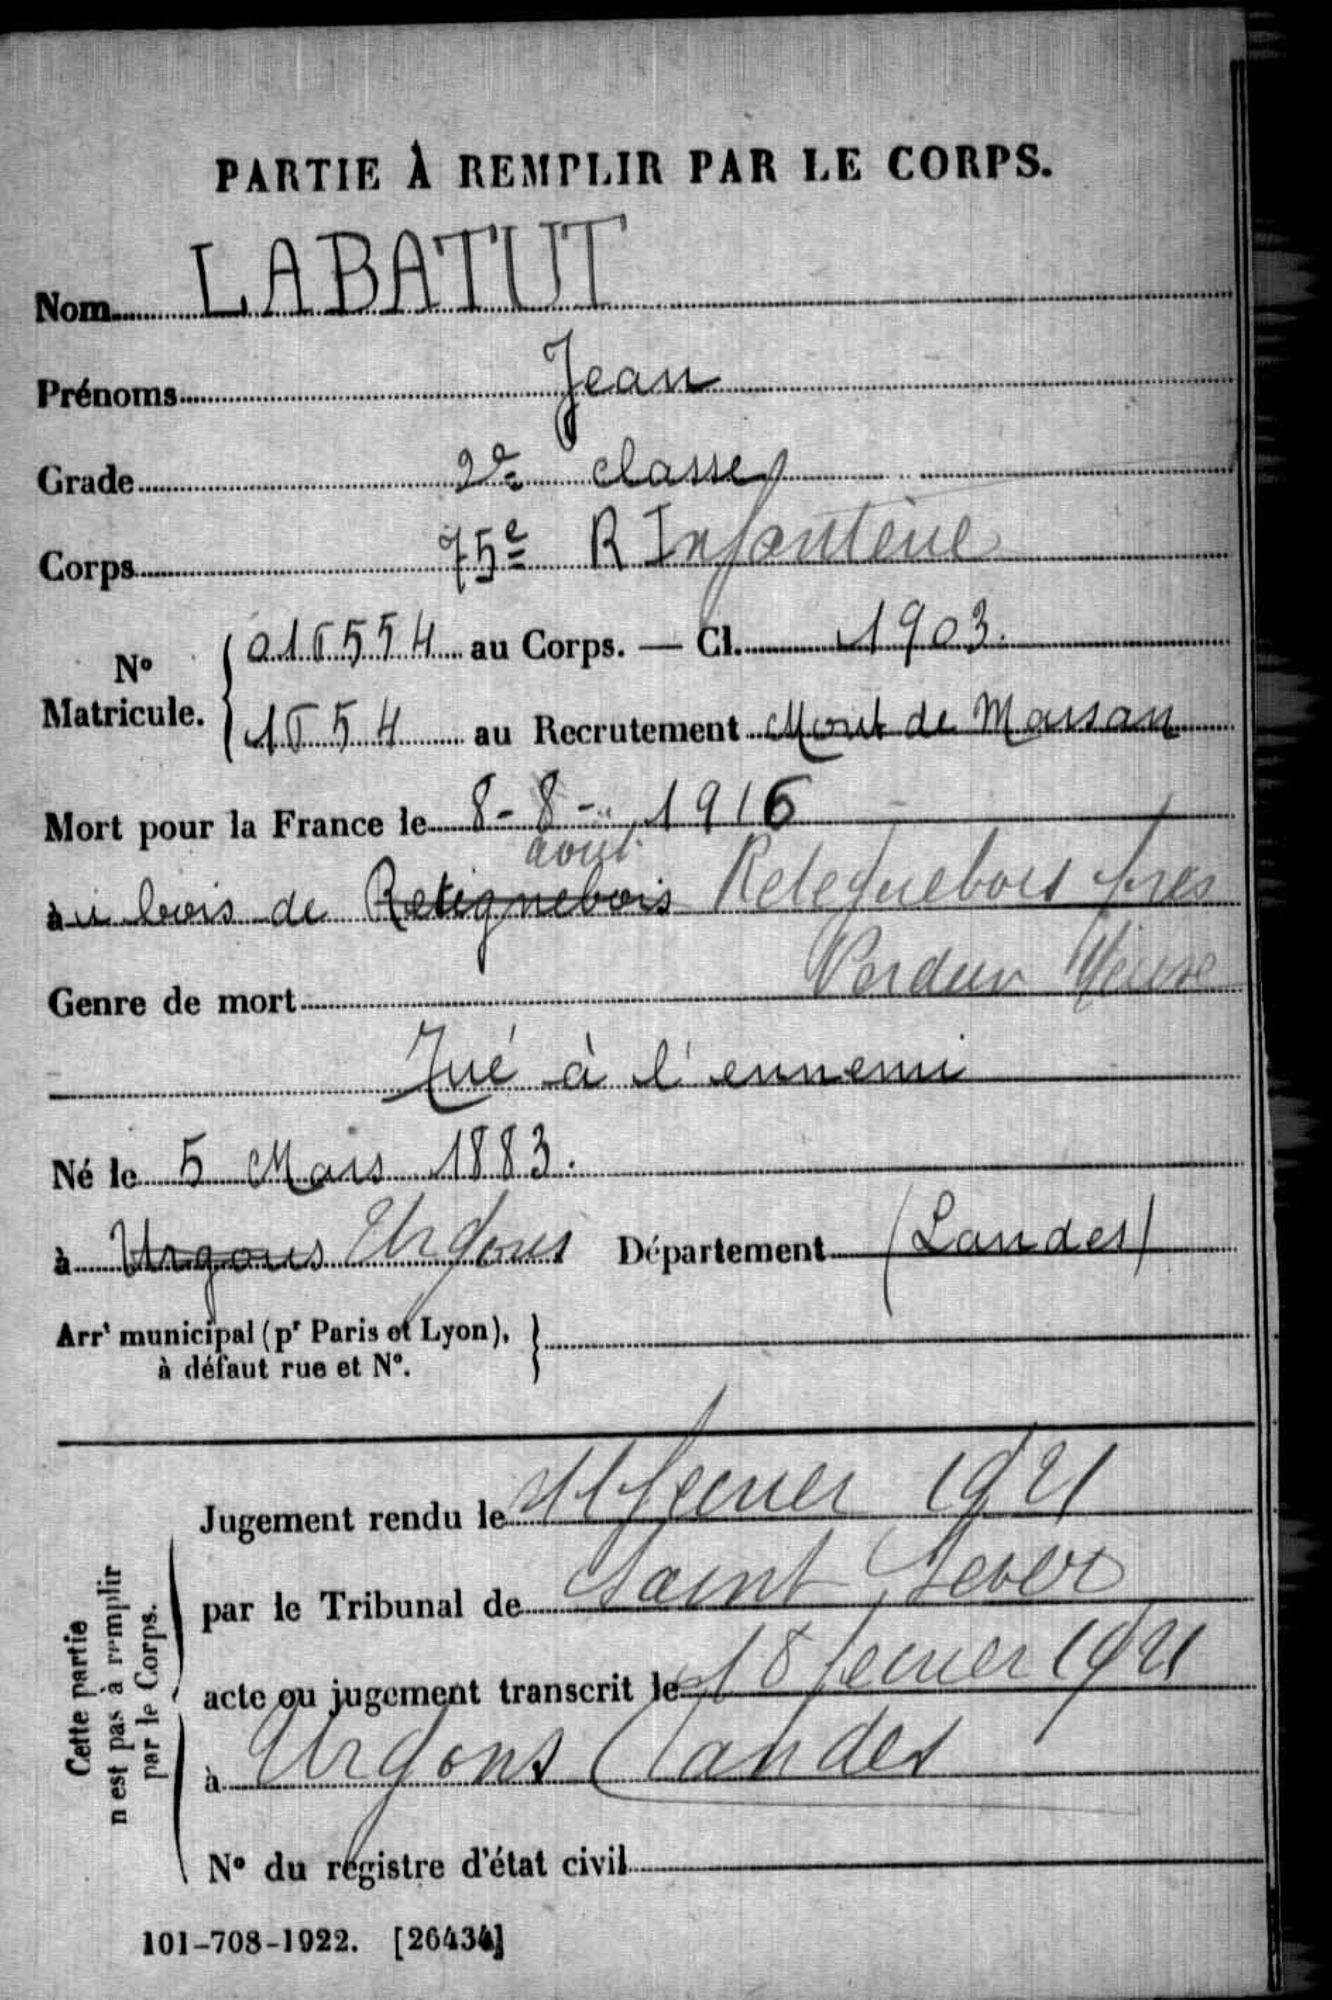 PARTIE À REMPLIR PAR LE CORPS.
Nom LABATUT
Prénoms Jean
Grade 2e classe
Corps 75e R Infanterie
No Matricule. { 015554 au Corps. — Cl. 1903.
1554 au Recrutement Mont de Marsan
Mort pour la France le 8-8-1916
aout
au bois de Retegnebois Retegnebois près
Verdun Meuse
Genre de mort
Tué à l'ennemi
Né le 5 Mars 1883.
à Urgons Urgons Département (Landes)
Arrt municipal (pr Paris et Lyon), }
à défaut rue et No.
Cette partie
n'est pas à remplir
par le Corps.
Jugement rendu le 11 fevrier 1921
par le Tribunal de Saint Sever
acte ou jugement transcrit le 18 fevrier 1921
à Urgons Landes
No du registre d'état civil
101-708-1922. [26434]